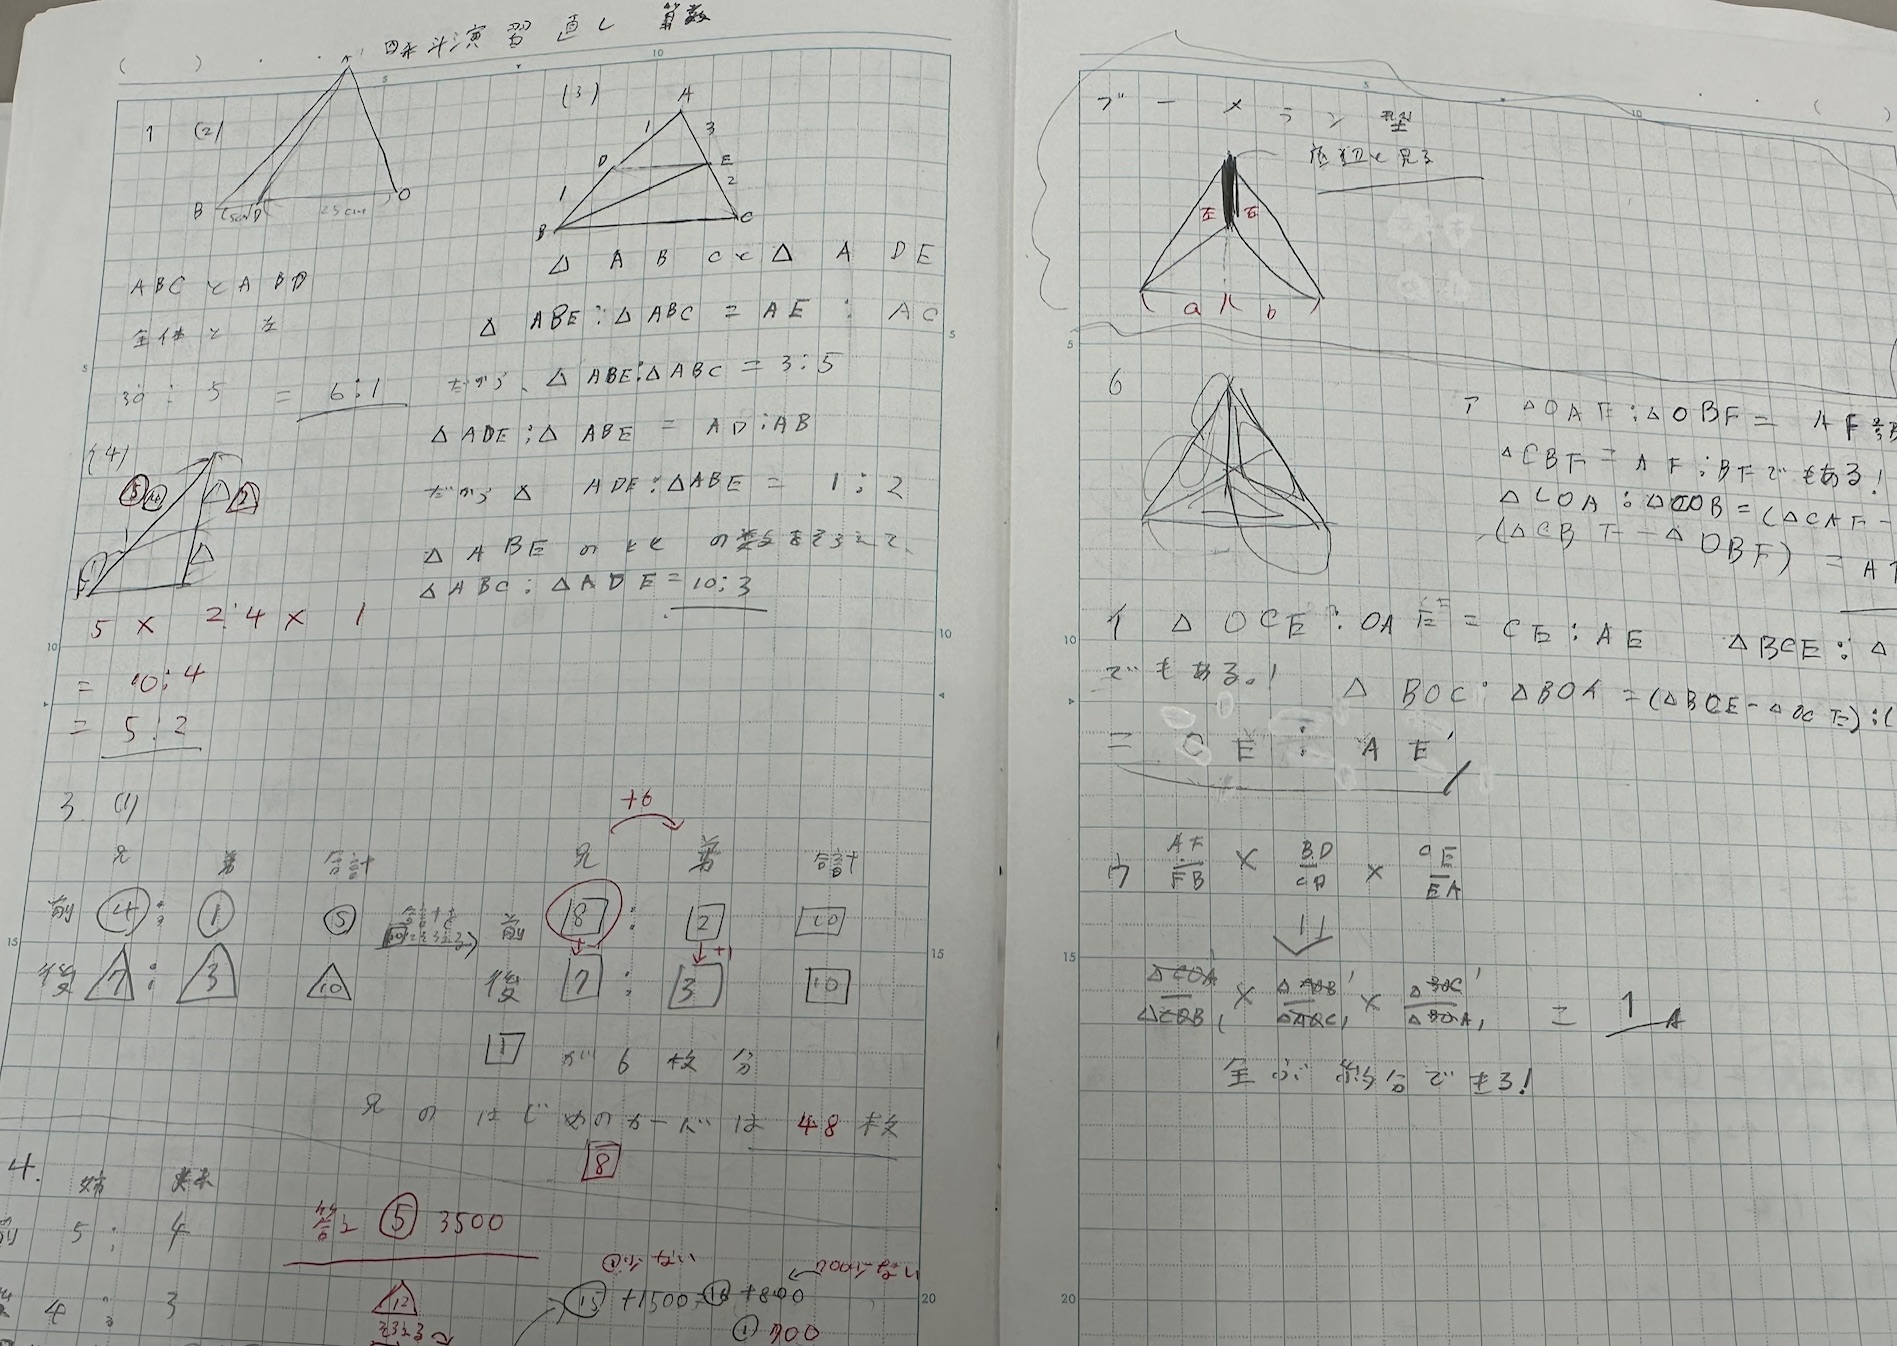 演習直し 算数
1 (2)
A
B 5cm D 25cm C
ABCとABD
全体と左
30:5=6:1
(3)
A
1 3
D E
1 2
B C
△ABCと△ADE
△ABE:△ABC=AE:AC
だから、△ABE:△ABC=3:5
△ADE:△ABE=AD:AB
だから△ADE:△ABE=1:2
△ABEのもとの数をそろえて、
△ABC:△ADE=10:3
(4)
5×2:4×1
=10:4
=5:2
3 (1)
兄 弟 合計
前 4:1 5
後 7:3 10
+6
兄 弟 合計
前 8:2 10
+1
後 7:3 10
1が6枚分
兄のはじめのカードは48枚
8
4. 姉 妹
前 5:4
4:3
5 3500
12
15+1500=16+800
1 700
ブーメラン型
底辺と見る
左 右
a b
6
ア △OAF:△OBF=AF:
△CBF=AF:BFでもある!
△COA:△COB=(△CAF-
(△CBF-△OBF)=
イ △OCE:OAE=CE:AE △BCE:△
でもある。!
△BOC:△BOA=(△BCE-△OCE):(
=CE:AE
ウ AF/FB×BD/CD×CE/EA
△COA/△COB×△AOB/△AOC×△BOC/△BOA=1
全部約分できる!